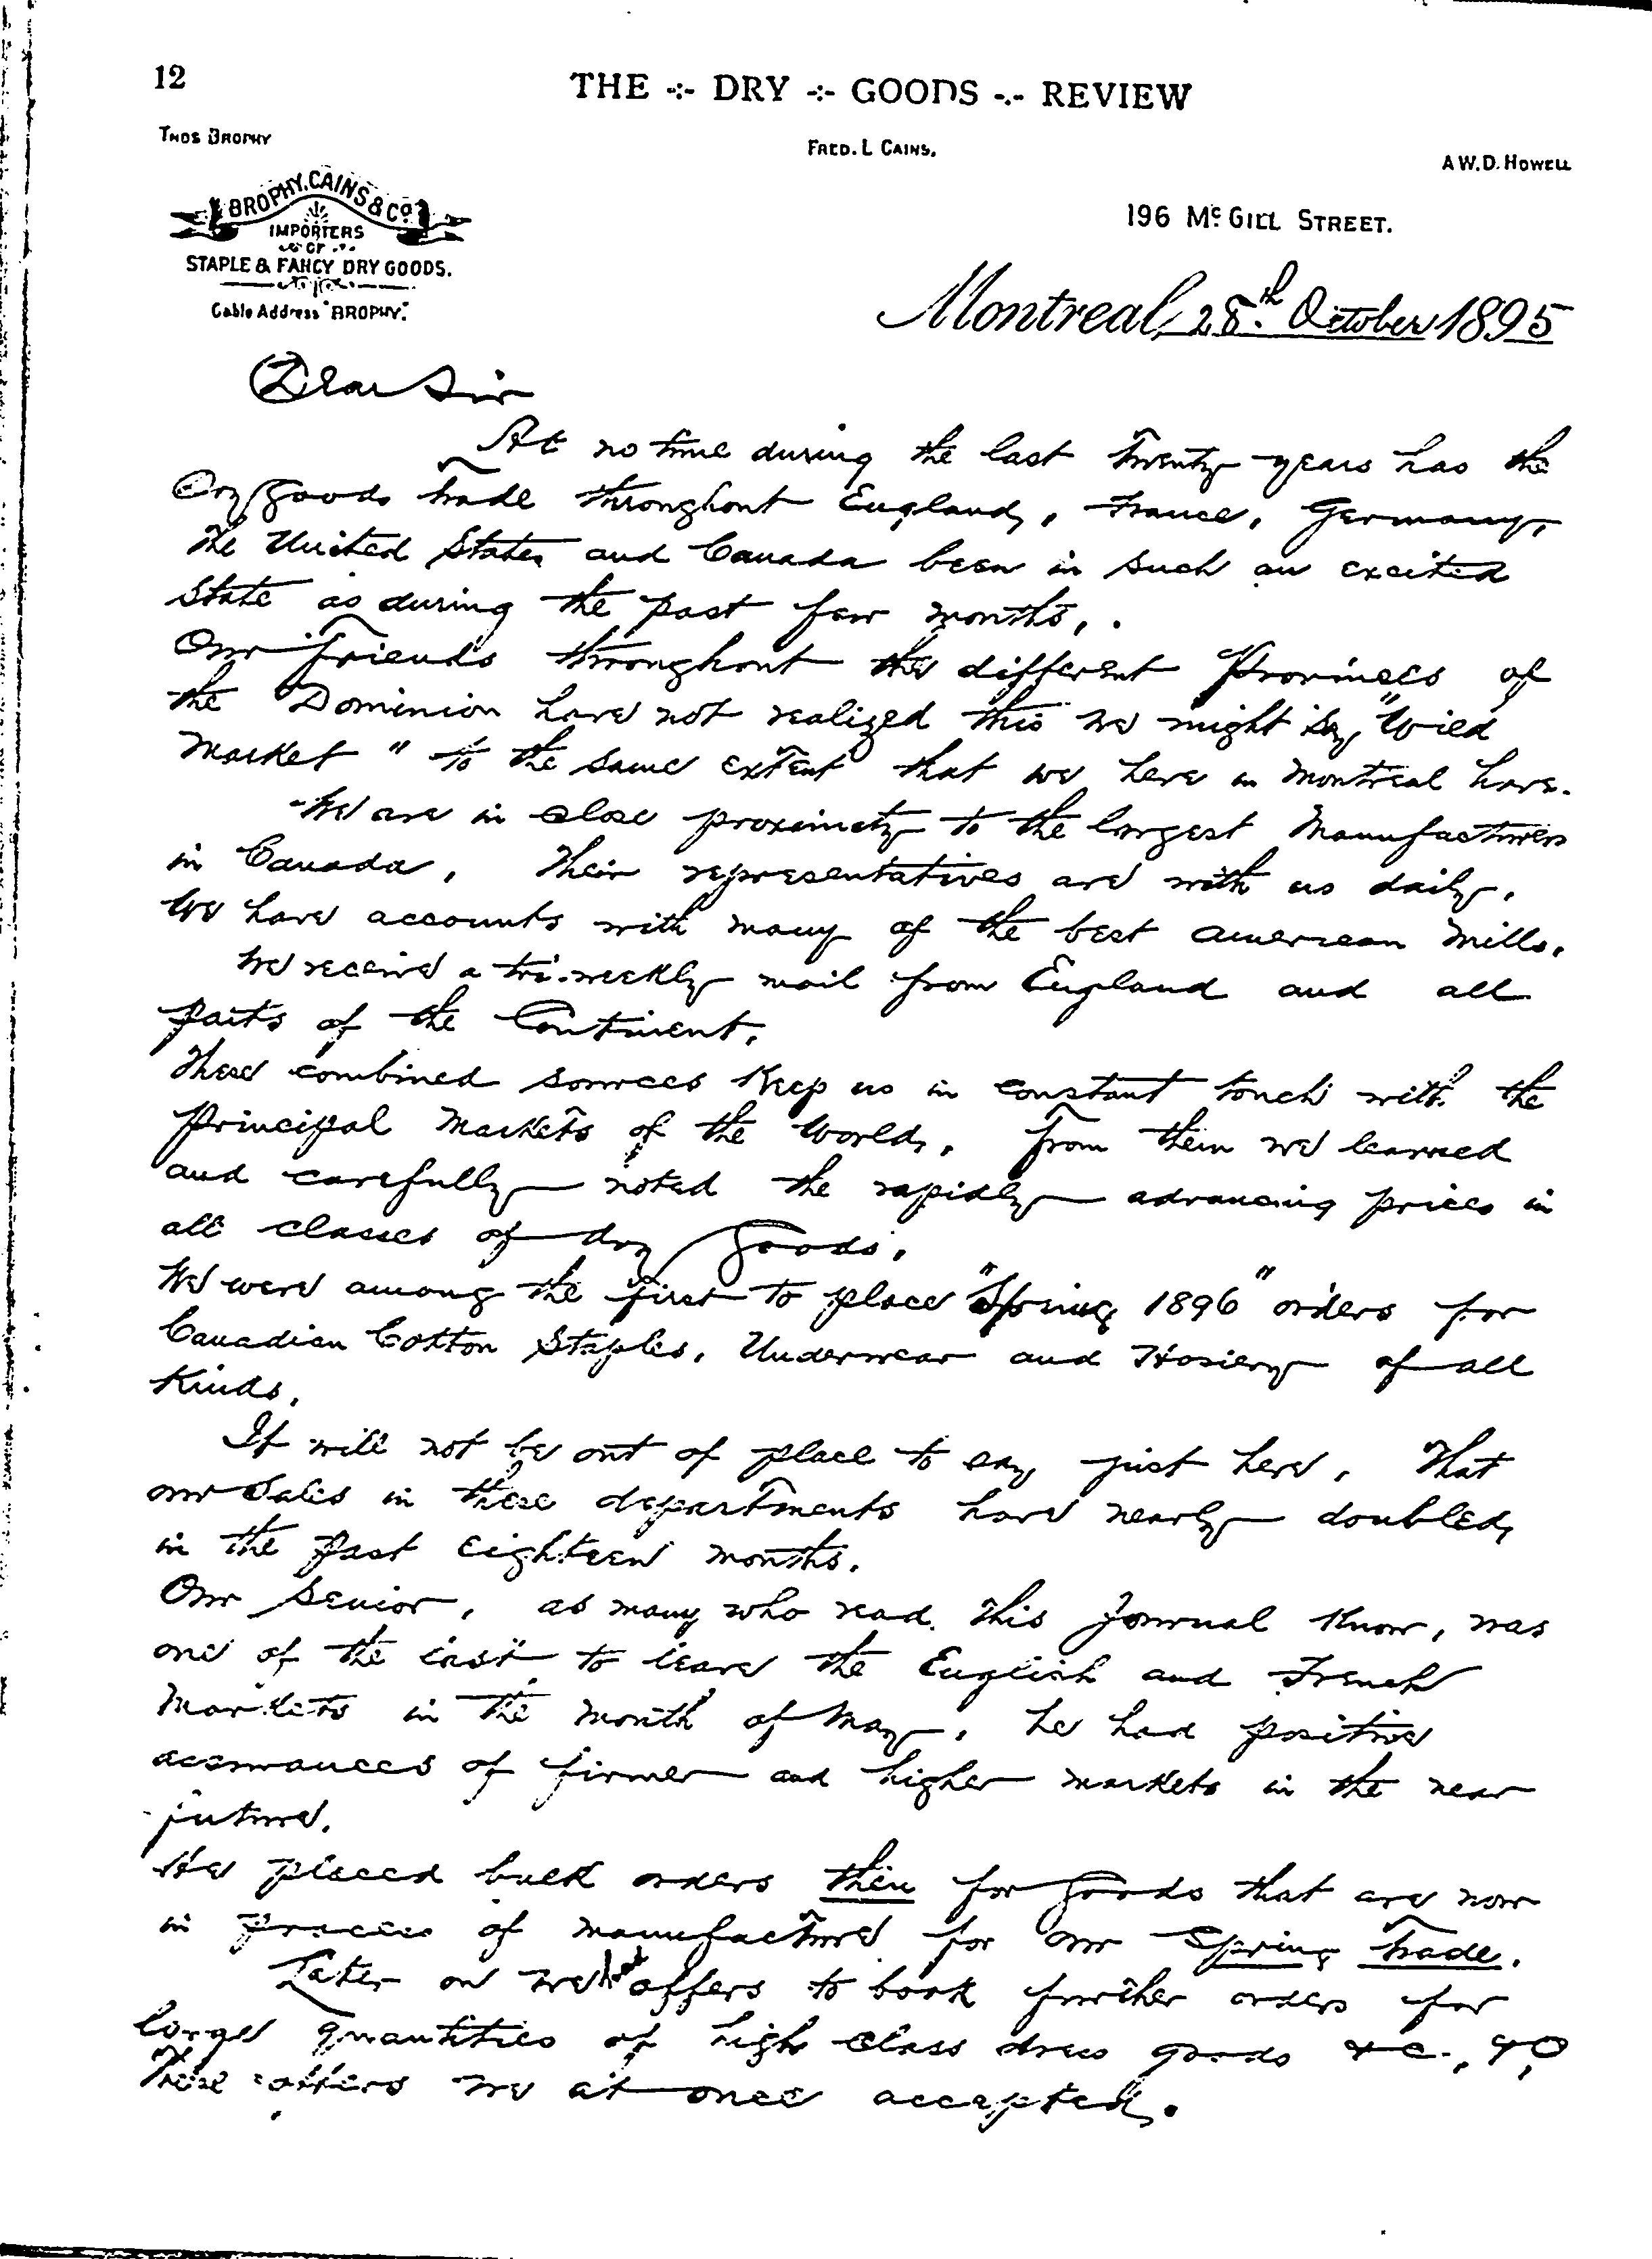 12
THE -:- DRY -:- GOODS -:- REVIEW
THOS BROPHY
FRED. L CAINS.
A W. D. HOWELL
BROPHY, CAINS & Co
IMPORTERS
OF
STAPLE & FANCY DRY GOODS.
Cable Address "BROPHY".
196 Mc GILL STREET.
Montreal, 28th. October 1895
Dear Sir
At no time during the last Twenty years has the
Dry Goods Trade throughout England, France, Germany,
The United States and Canada been in such an excited
state as during the past few months.
Our Friends throughout the different Provinces of
the Dominion have not realized this we might say, "Wild
Market" to the same extent that we here in Montreal have.
We are in close proximity to the largest Manufacturers
in Canada, Their representatives are with us daily.
We have accounts with many of the best American Mills.
We receive a tri-weekly mail from England and all
parts of the Continent.
These combined sources keep us in constant touch with the
Principal Markets of the World, From them we learned
and carefully noted the rapidly advancing prices in
all classes of dry Goods.
We were among the first to place "Spring 1896" orders for
Canadian Cotton Staples, Underwear and Hosiery of all
Kinds.
It will not be out of place to say just here, That
our Sales in these departments have nearly doubled,
in the past eighteen months.
Our Senior, as many who read this Journal Know, was
one of the last to leave the English and French
Markets in the month of May, he had positive
assurances of firmer and higher markets in the near
future.
He placed bulk orders then for Goods that are now
in process of manufacture for our Spring Trade.
Later on we had offers to book further orders for
large quantities of high class dress goods &c., &c,
These offers we at once accepted.